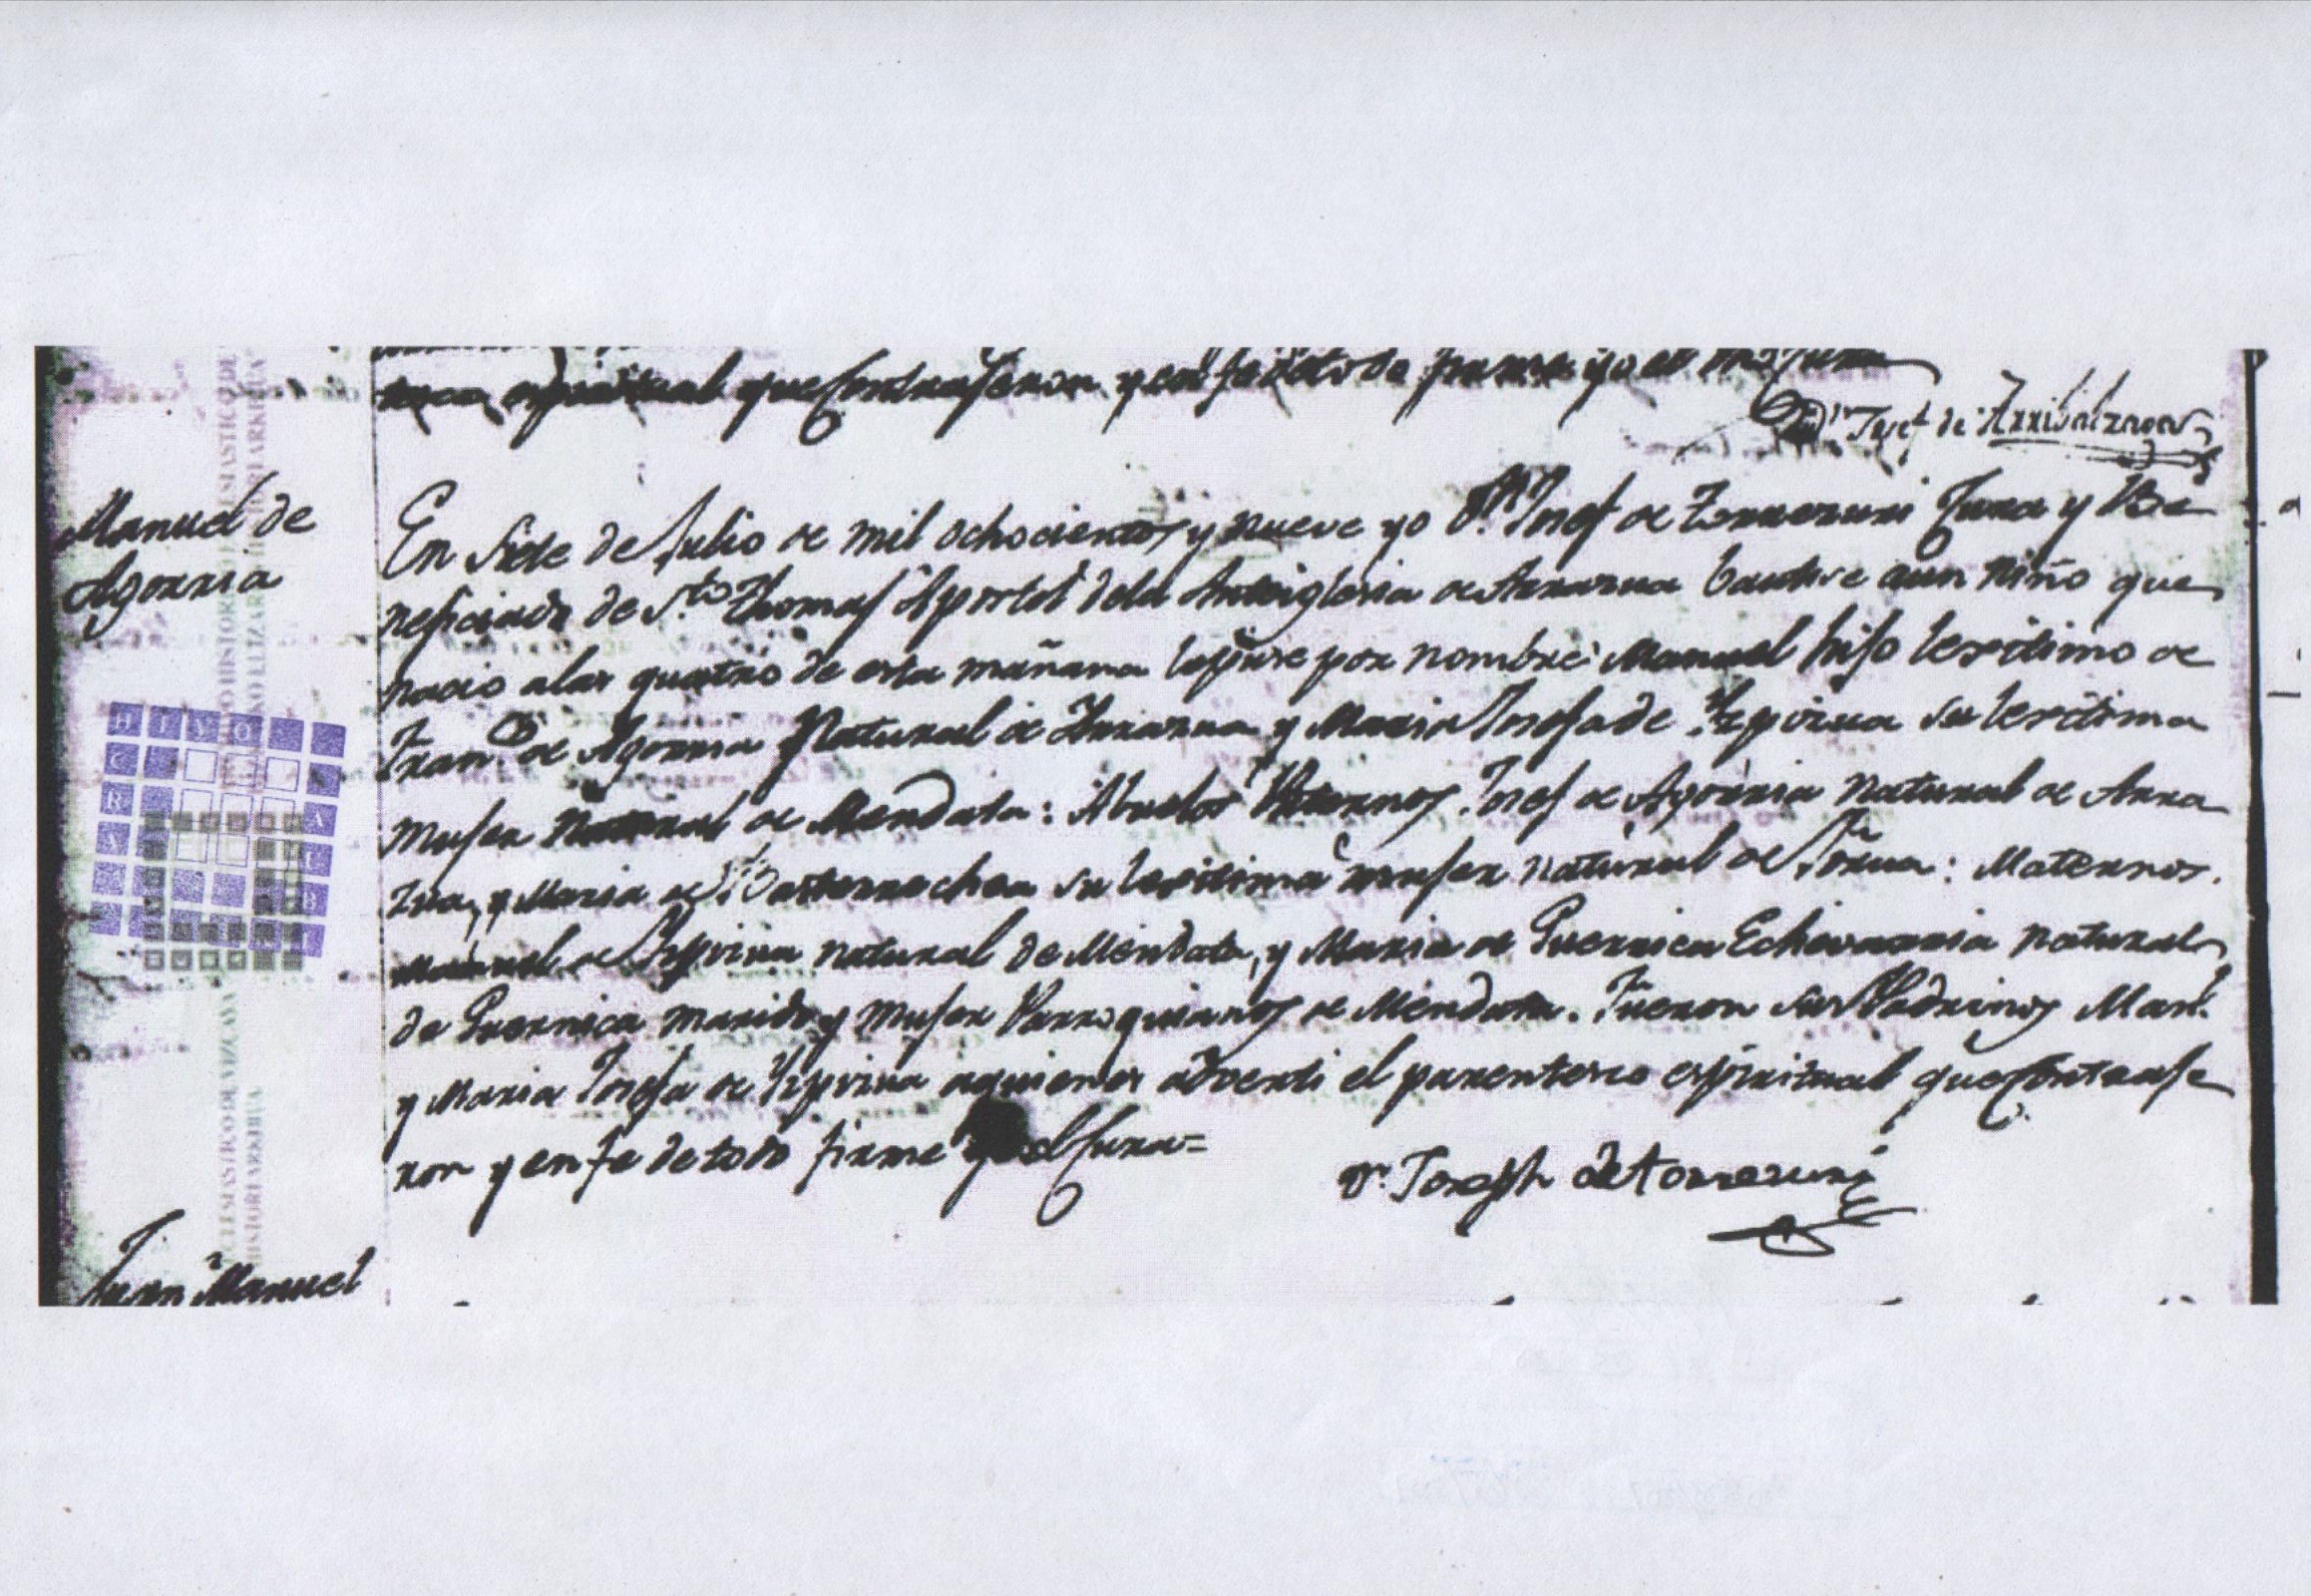 espiritual que Contrajeron, y en fe de todo firme yo el
Dn. Josef de Arribalzaga
Manuel de
Agorria
En Siete de Julio de mil ochocientos y nueve yo Dn. Josef de Torrezuri Cura y Be
neficiado de Sto. Thomas Apostol dela Anteiglesia de Arrazua bautise aun niño que
nacio alas quatro de esta mañana lepuse por nombre Manuel hijo lexitimo de
Franco. de Agorria Natural de Arrazua y Maria Josefa de Ispizua su lexitima
Mujer Natural de Mendata: Abuelos Paternos Josef de Agorria Natural de Arra
zua, y Maria de Basterrechea su lexitima mujer natural de Forua: Maternos.
Manuel de Ispizua natural de Mendata, y Maria de Guernica Echevarria natural
de Guernica marido y Mujer Parroquianos de Mendata. Fueron sus Padrinos Manl.
y Maria Josefa de Ispizua aquienes adverti el parentesco espiritual que Contraje
ron y en fe de todo firme yo el Cura=
Dn. Joseph de Torrezuri
Juan Manuel
HISTORI ARKIBUA